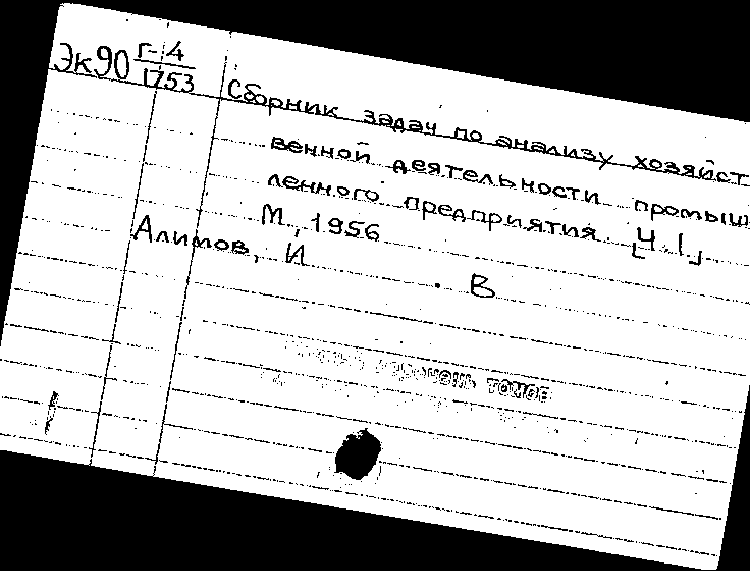 Эк90 Г-4
1753
Сборник задач по анализу хозяйст
венной деятельности промыш
ленного предприятия. [Ч.1]
М, 1956
Алимов, И. В
томов